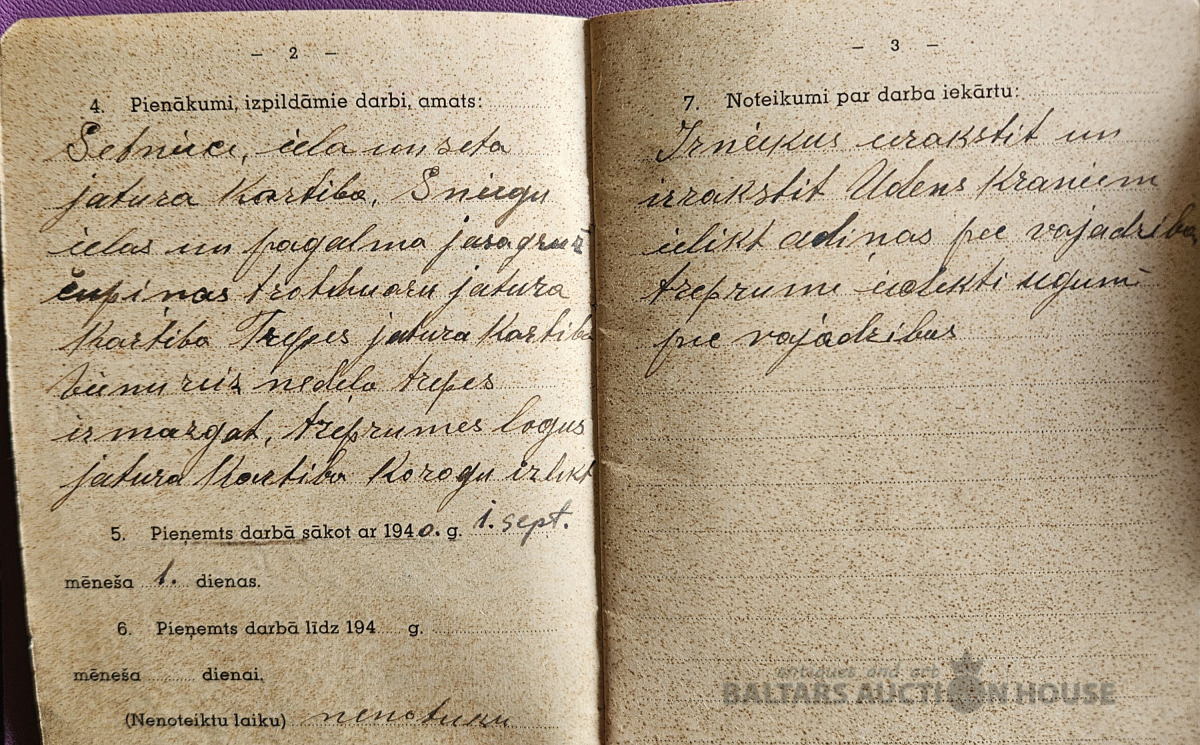 — 2 —
4. Pienākumi, izpildāmie darbi, amats:
Setnieci, iela un seta
jatura Kartiba, Sniegu
ielas un pagalma jasagruž
čupiņas trotuaru jatura
Kartiba Trepes jatura Kartiba
Vienu reiz nedeļa trepes
izmazgat, treprumes logus
jatura Kartiba Karogu izlikt
5. Pieņemts darbā sākot ar 1940. g. 1. sept.
mēneša 1. dienas.
6. Pieņemts darbā līdz 194 g.
mēneša dienai.
(Nenoteiktu laiku)
— 3 —
7. Noteikumi par darba iekārtu:
Irniekus ierakstit un
izrakstit Udens Kraniem
ielikt adiņas pec vajadziba
treprumi ielikti uguni
pie vajadzibas
antiques and art
BALTARS AUCTION HOUSE